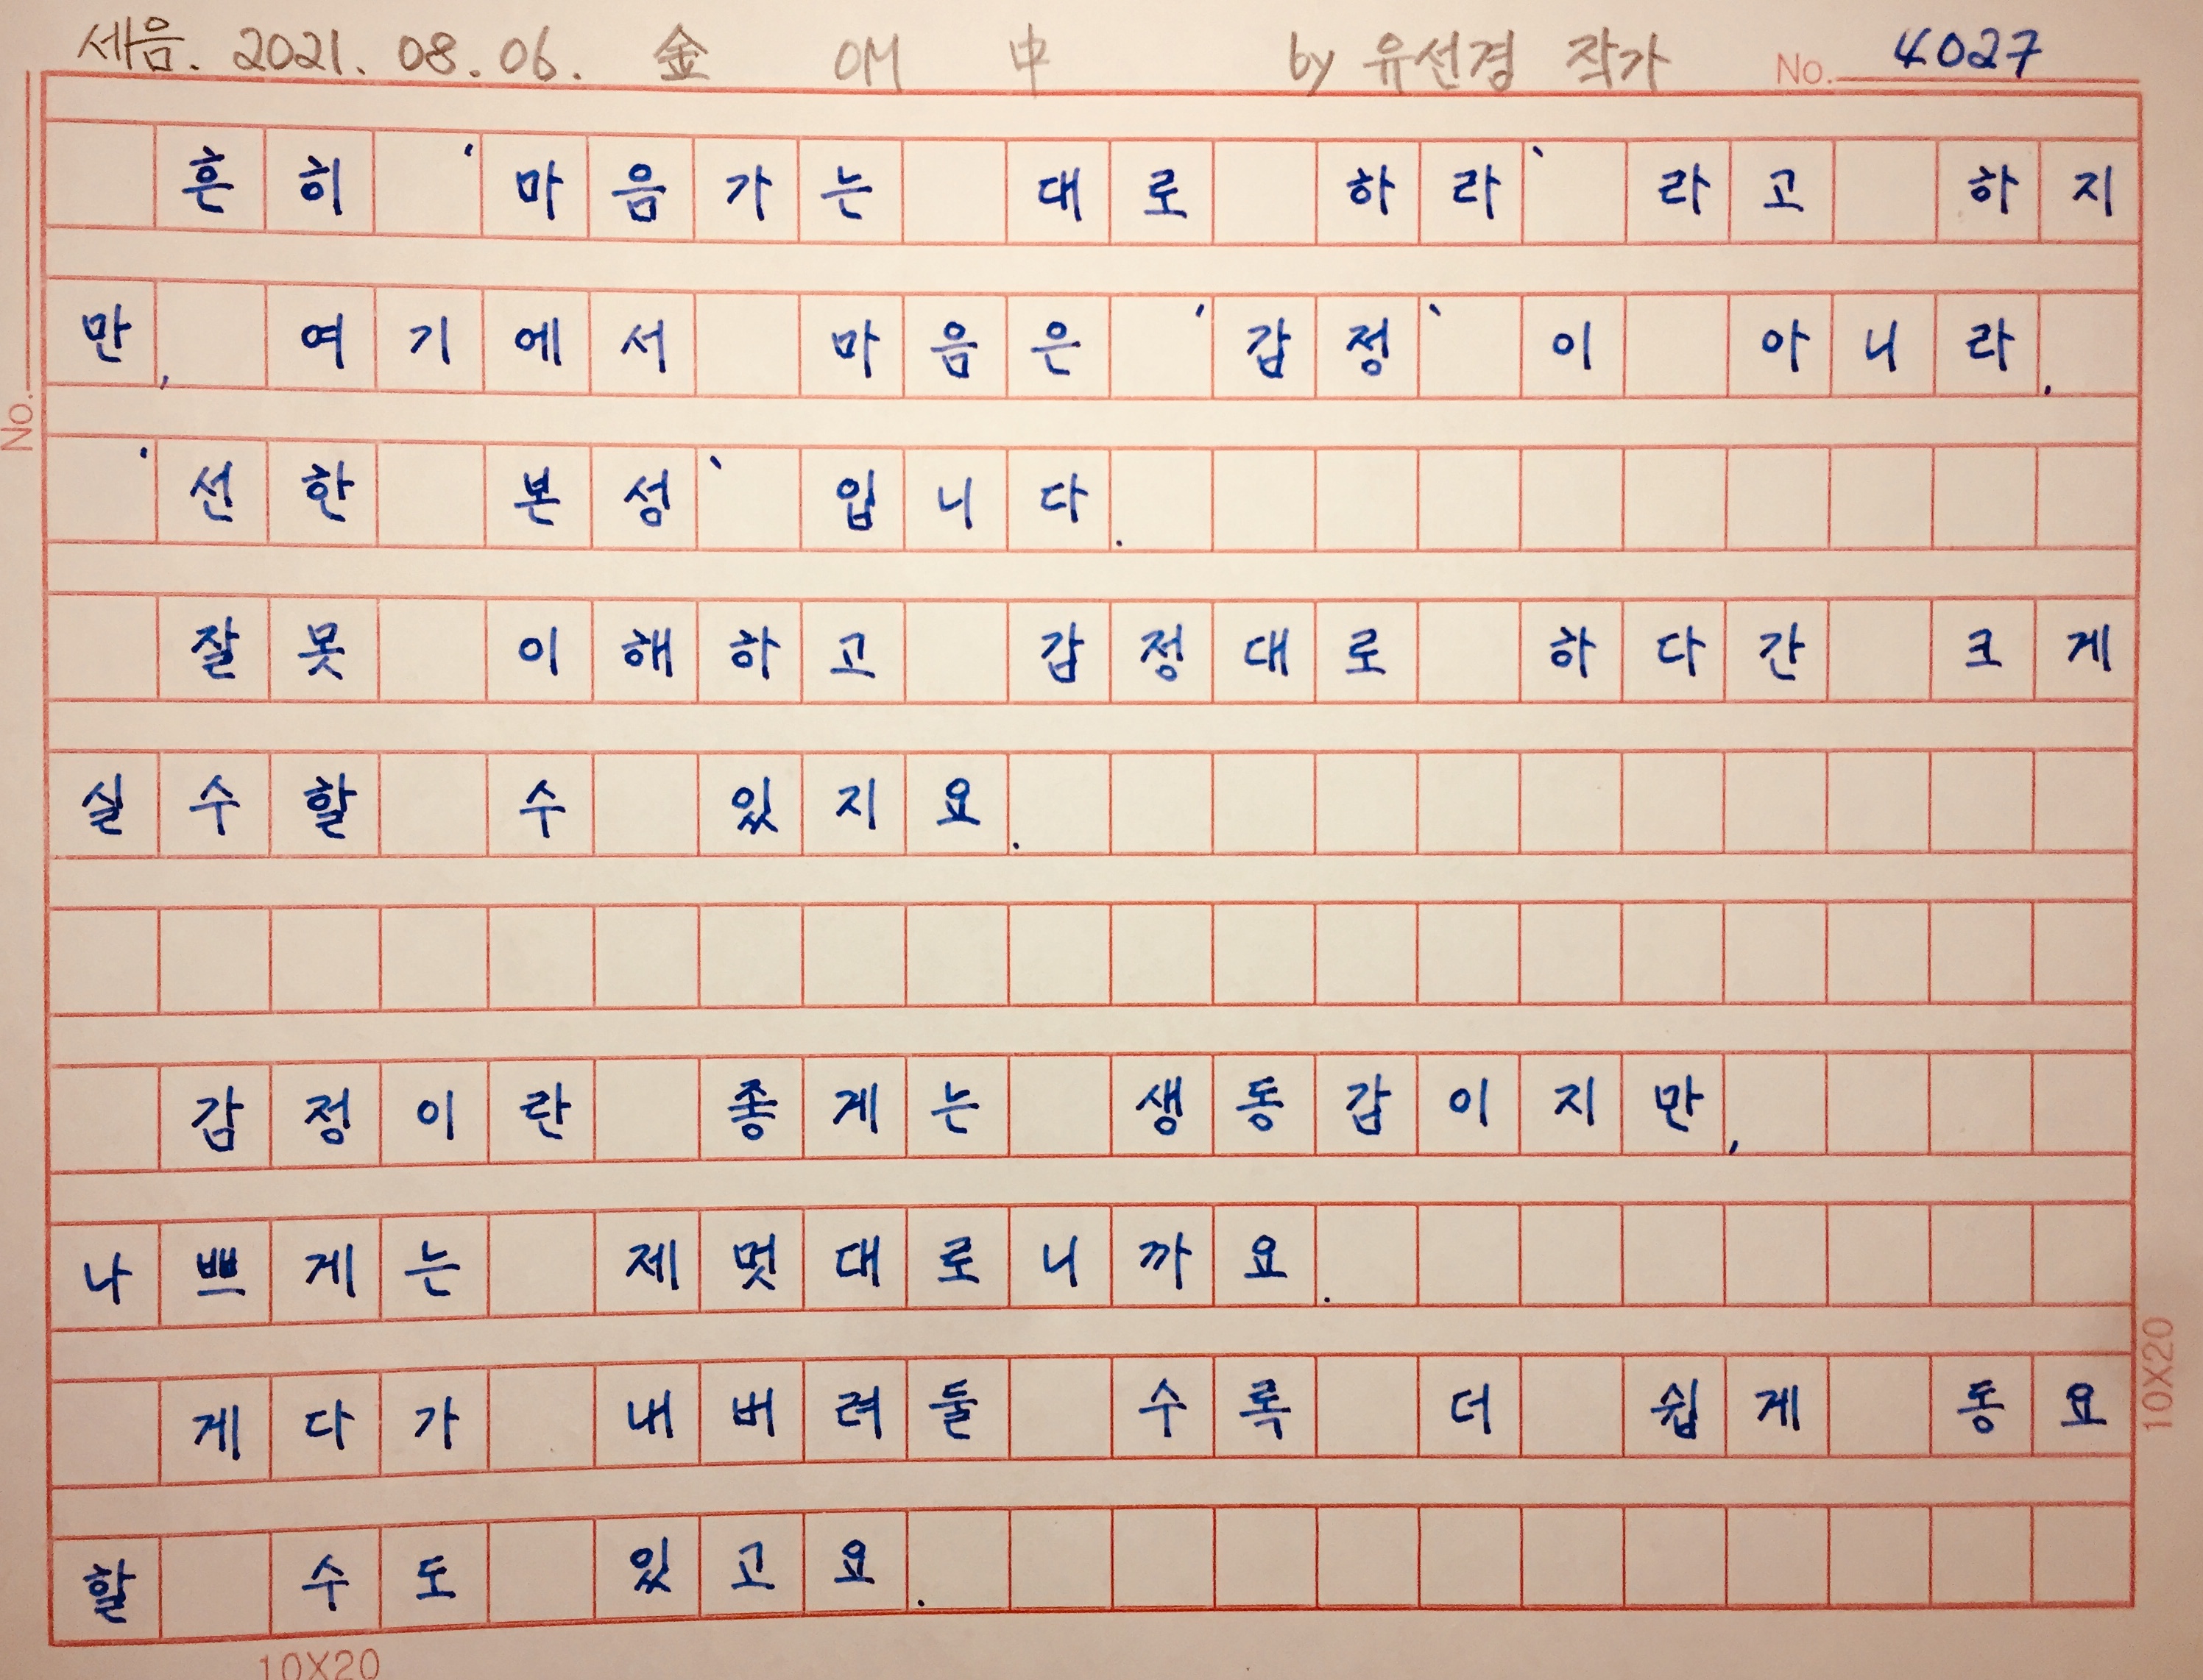 세음. 2021. 08. 06. 金 OM 中 by 유선경 작가 No. 4027
흔히 '마음가는 대로 하라' 라고 하지
만, 여기에서 마음은 '감정' 이 아니라.
'선한 본성' 입니다.
잘못 이해하고 감정대로 하다간 크게
실수할 수 있지요.
감정이란 좋게는 생동감이지만,
나쁘게는 제멋대로니까요.
게다가 내버려둘 수록 더 쉽게 동요
할 수도 있고요.
No.
10X20
10X20